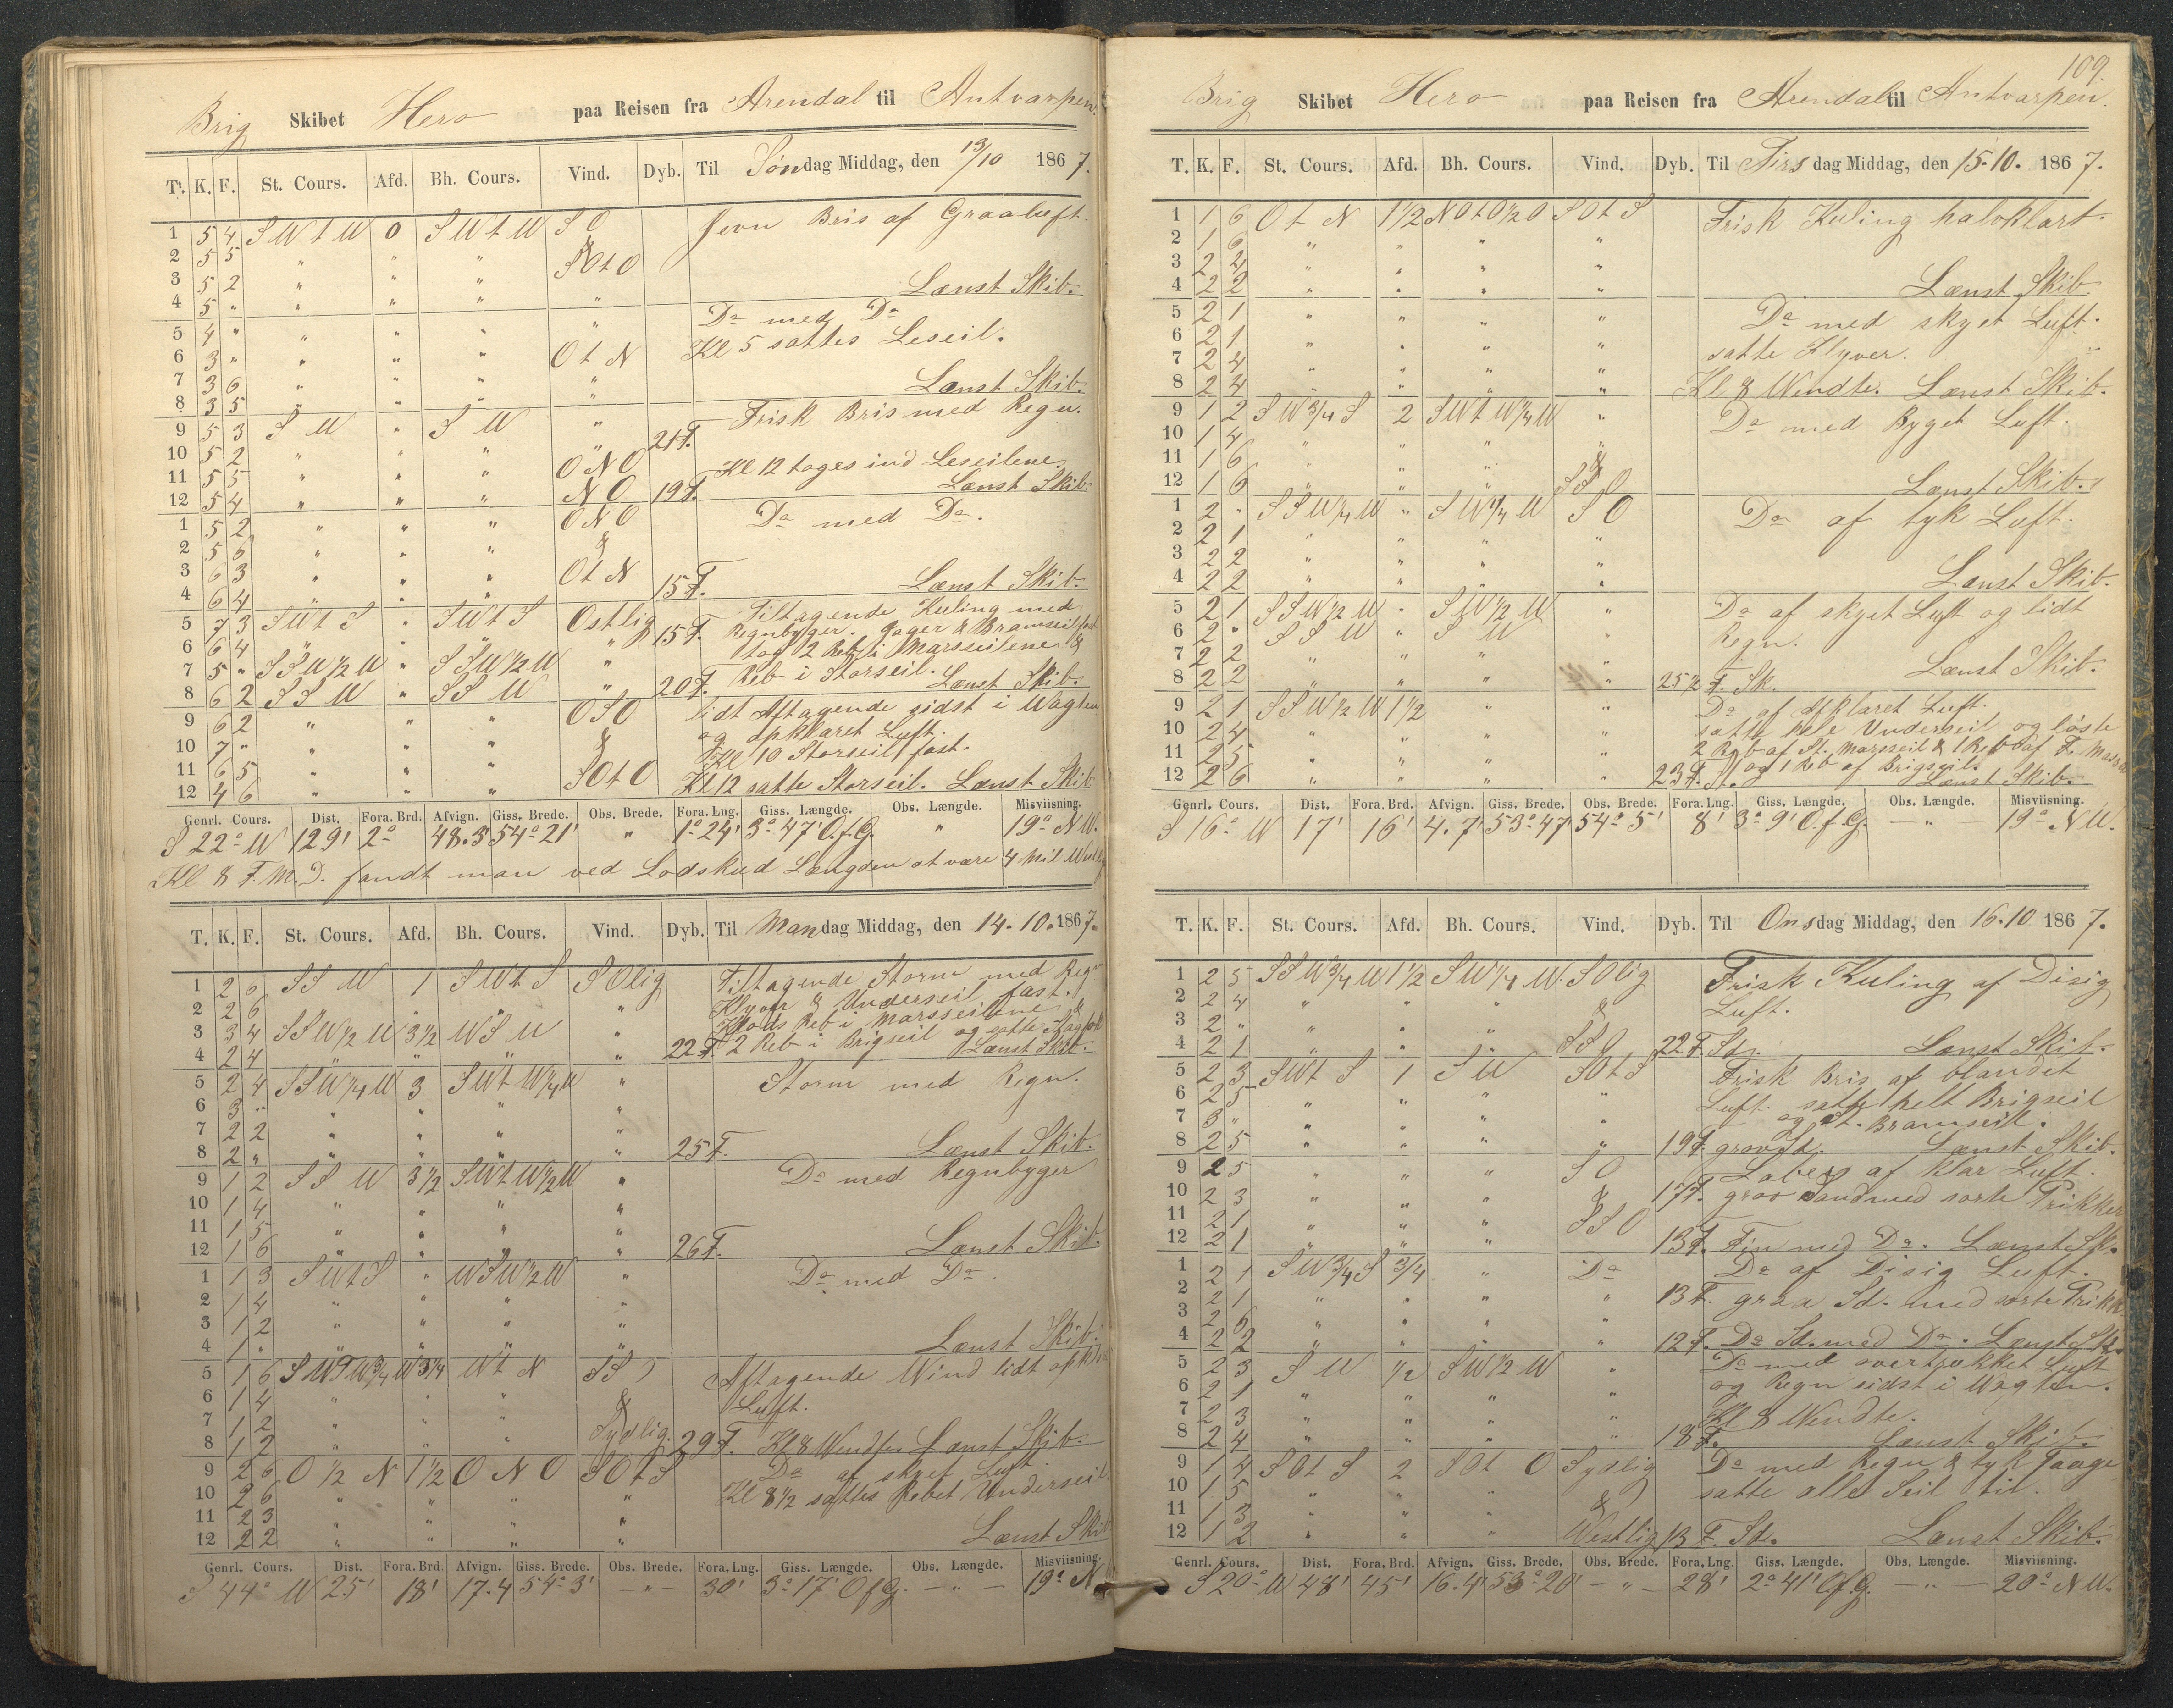 Brig Skibet Hero paa Reisen fra Arendal til Antvarpen.
T. K. F. St. Cours. Afd. Bh. Cours. Vind. Dyb. Til Søndag Middag, den 13/10 1867.
1 5 4 S W t W 0 S W t W S O Jevn Bris af Graaluft.
2 5 5 " " " &
3 5 2 " " " SOtO Lænst Skib.
4 5 " " " " "
5 4 " " " " " Do med Do
6 3 " " " " O t N Kl 5 sattes Leseil.
7 3 6 " " " "
8 3 5 " " " " Lænst Skib.
9 5 3 S W " S W " 21 F. Frisk Bris med Regn.
10 5 2 " " " "
11 5 5 " " " O N O Kl 12 toges ind Leseilene.
12 5 4 " " " N O 19 F. Lænst Skib.
1 5 2 " " " O N O Do med Do.
2 5 6 " " " &
3 6 3 " " " O t N
4 6 4 " " " 15 F. Lænst Skib.
5 7 3 S W t S " S W t S Ostlig 15 F. Tiltagende Kuling med
Regnbyger. Jager & Bramseil fast
6 6 4 " " " " tog 2 Reb i Marsseilene &
7 5 " S S W 1/2 W " S S W 1/2 W " Reb i Storseil.
8 6 2 S S W " S S W " 20 F. Lænst Skib.
9 6 2 " " " O S O lidt Aftagende sidst i Vagten
og opklaret Luft.
10 7 " " " " & Kl 10 Storseil fast.
11 6 5 " " "
12 4 6 " " " SOtO Kl 12 satte Storseil. Lænst Skib
Genrl. Cours. Dist. Fora. Brd. Afvign. Giss. Brede. Obs. Brede. Fora. Lng. Giss. Længde. Obs. Længde. Misviisning.
S 22° W 129' 2° 48.3' 54° 21' " 1° 24' 3° 47' O.f.G. " 19° N W.
Kl 8 F.M.D. fandt man ved Lodskud Længden at være 4 Mil
T. K. F. St. Cours. Afd. Bh. Cours. Vind. Dyb. Til Mandag Middag, den 14.10.1867.
1 2 6 S S W 1 S W t S S Olig Tiltagende Storm med Regn
2 2 6 " " " " Klyver & Underseil fast.
3 3 4 S S W 1/2 W 3 1/2 W S W " Reb i Marsseilene &
4 2 4 " " " " 22 F. 2 Reb i Brigseil og satte Stagfok Lænst Skib.
5 2 4 S S W 1/4 W 3 S W t W 1/4 W " Storm med Regn.
6 3 " " " " "
7 2 2 " " " "
8 2 " " " " " 25 F. Lænst Skib.
9 1 2 S S W 3 1/2 S W t W 1/2 W " Do med Regnbyger
10 1 4 " " " "
11 1 5 " " " "
12 1 6 " " " " 26 F. Lænst Skib.
1 1 3 S W t S " W S W 1/2 W " Do med Do.
2 1 4 " " " "
3 1 2 " " " "
4 1 " " " " " Lænst Skib.
5 1 6 S W t W 3/4 W 3 1/4 W t N S S O Aftagende Wind lidt
6 1 4 " " " & Luft.
7 1 2 " " "
8 1 2 " " " Sydlig. 29 F. Kl 8 Wendte Lænst Skib.
9 2 6 O 1/2 N 1 1/2 O N O S O t S Do af skyet Luft
10 2 6 " " " " Kl 8 1/2 sattes Rebet Underseil
11 2 3 " " " "
12 2 2 " " " " Lænst Skib
Genrl. Cours. Dist. Fora. Brd. Afvign. Giss. Brede. Obs. Brede. Fora. Lng. Giss. Længde. Obs. Længde. Misviisning.
S 44° W 25' 18' 17.4 54° 3' — " — 30' 3° 17' O f G. — " — 19° N
109.
Brig Skibet Hero paa Reisen fra Arendal til Antvarpen.
T. K. F. St. Cours. Afd. Bh. Cours. Vind. Dyb. Til Tirsdag Middag, den 15.10. 1867.
1 1 6 O t N 1 1/2 N O t O 1/2 O S O t S Frisk Kuling halvklart.
2 1 6 " " " "
3 2 4 " " " "
4 2 2 " " " " Lænst Skib
5 2 1 " " " " Do med skyet Luft.
6 2 1 " " " " satte Klyver.
7 2 4 " " " "
8 2 4 " " " " Kl 8 Wendte. Lænst Skib.
9 1 2 S W 3/4 S 2 S W t W 1/4 W " Do med Byget Luft.
10 1 4 " " " "
11 1 6 " " " &
12 1 6 " " " S S O Lænst Skib.
1 2 " S S W 1/4 W " S W 1/4 W S O Do af tyk Luft.
2 2 1 " " " "
3 2 2 " " " "
4 2 2 " " " " Lænst Skib.
5 2 1 S S W 1/2 W " S W 1/2 W " Do af skyet Luft og lidt
6 2 " S S W " S W " Regn.
7 2 2 " " " "
8 2 2 " " " " 25 1/2 F. Sk. Lænst Skib.
9 2 1 S S W 1/2 W 1 1/2 " " Do af opklaret Luft.
10 2 4 " " " " satte hele Underseil og løste
11 2 5 " " " " 2 Reb af St. Marsseil & 1 Reb af F. Mars
og 1 Reb af Brigseil.
12 2 6 " " " " 23 F. St. Lænst Skib.
Genrl. Cours. Dist. Fora. Brd. Afvign. Giss. Brede. Obs. Brede. Fora. Lng. Giss. Længde. Obs. Længde. Misviisning.
S 16° W 17' 16' 4.7' 53° 47' 54° 5' 8' 3° 9' O.f.G. — " — 19° N W.
T. K. F. St. Cours. Afd. Bh. Cours. Vind. Dyb. Til Onsdag Middag, den 16.10 1867.
1 2 5 S S W 3/4 W 1 1/2 S W 1/4 W. S Olig Frisk Kuling af Disig
2 2 4 " " " & Luft.
3 2 " " " "
4 2 1 " " " S S O 22 F. Sd. Lænst Skib.
5 2 3 S W t S 1 S W S O t S Frisk Bris af blandet
6 2 5 " " " " Luft. satte helt Brigseil
7 3 " " " " " og St. Bramseil.
8 2 5 " " " " 19 F. grov Sd. Lænst Skib.
9 2 5 " " " S O Laber af klar Luft.
10 2 3 " " " & 17 F. grov Sand med sorte Prikker
11 2 1 " " " S S O
12 2 1 " " " 13 F. Fin med Do. Lænst Sk.
1 2 1 S W 3/4 S 3/4 " Do Do af Disig Luft.
2 2 1 " " " " 13 F. graa Sd. med sorte Prikk
3 2 6 " " " "
4 2 2 " " " " 12 F. Do Sd. med Do. Lænst Sk.
5 2 3 S W 1/2 S W 1/2 W " Do med overtrykket Luft
6 2 1 " " " " og Regn sidst i Vagten.
7 2 3 " " " " Kl 8 Wendte.
8 2 4 " " " " 18 F. Lænst Skib.
9 1 4 S O t S 2 S O t O Sydlig Do med Regn & tyk Taage
10 1 5 " " " & satte alle Seil til.
11 1 3 " " "
12 1 2 " " " Westlig 13 F. Sd. Lænst Skib.
Genrl. Cours. Dist. Fora. Brd. Afvign. Giss. Brede. Obs. Brede. Fora. Lng. Giss. Længde. Obs. Længde. Misviisning.
S 20° W 48' 45' 16.4' 53° 20' — " — 28' 2° 41' O.f.G. — " — 20° N W.